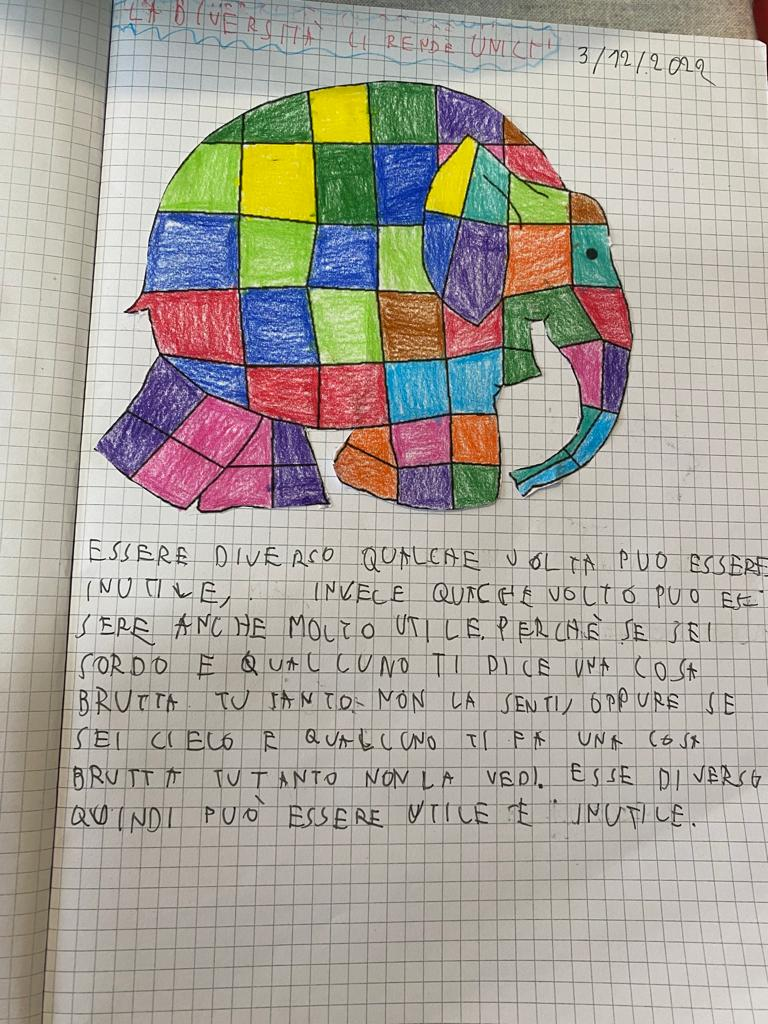 LA DIVERSITÀ CI RENDE UNICI
3/12/2022
ESSERE DIVERSO QUALCHE VOLTA PUO ESSERE
INUTILE, INVECE QUACHE VOLTO PUO ES
SERE ANCHE MOLTO UTILE. PERCHÈ SE SEI
SORDO E QUALCUNO TI DICE UNA COSA
BRUTTA TU TANTO NON LA SENTI, OPPURE SE
SEI CIECO E QUALCUNO TI FA UNA COSA
BRUTTA TU TANTO NON LA VEDI. ESSE DIVERSO
QUINDI PUÒ ESSERE UTILE E INUTILE.